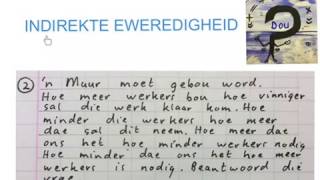 INDIREKTE EWEREDIGHEID
Dou
② 'n Muur moet gebou word.
Hoe meer werkers bou hoe vinniger
sal die werk klaar kom. Hoe
minder die werkers hoe meer
dae sal dit neem. Hoe meer dae
ons het hoe minder werkers nodig
Hoe minder dae ons het hoe meer
werkers is nodig. Beantwoord die
vrae